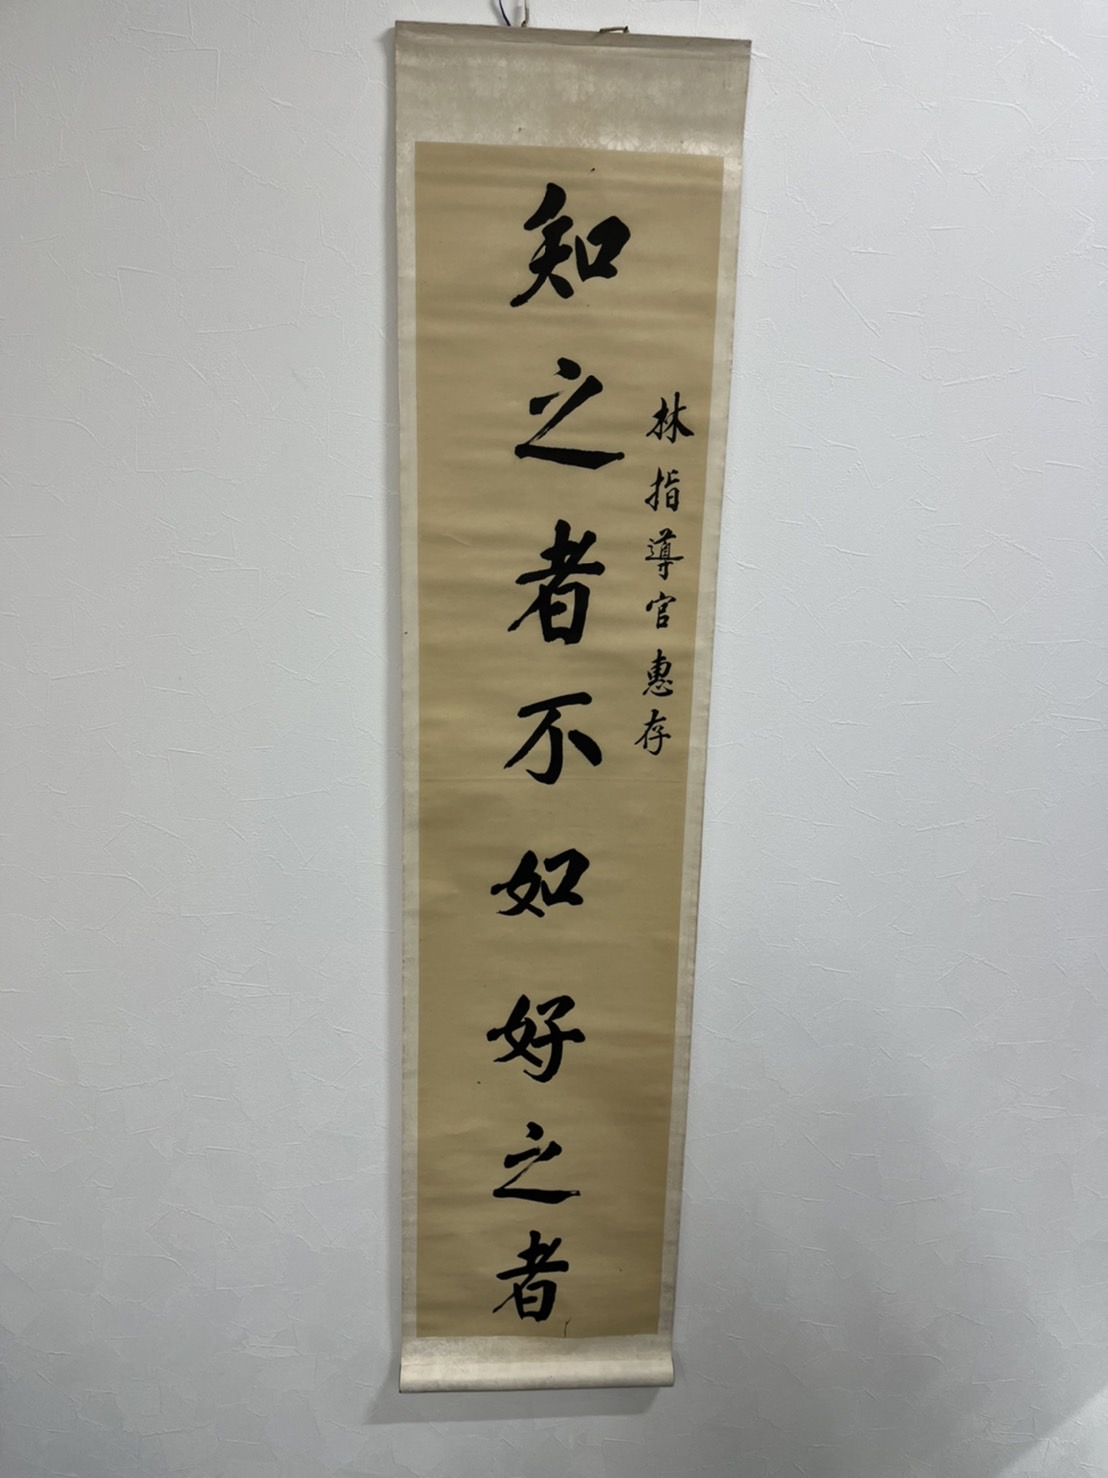 林指導官惠存
知之者不如好之者